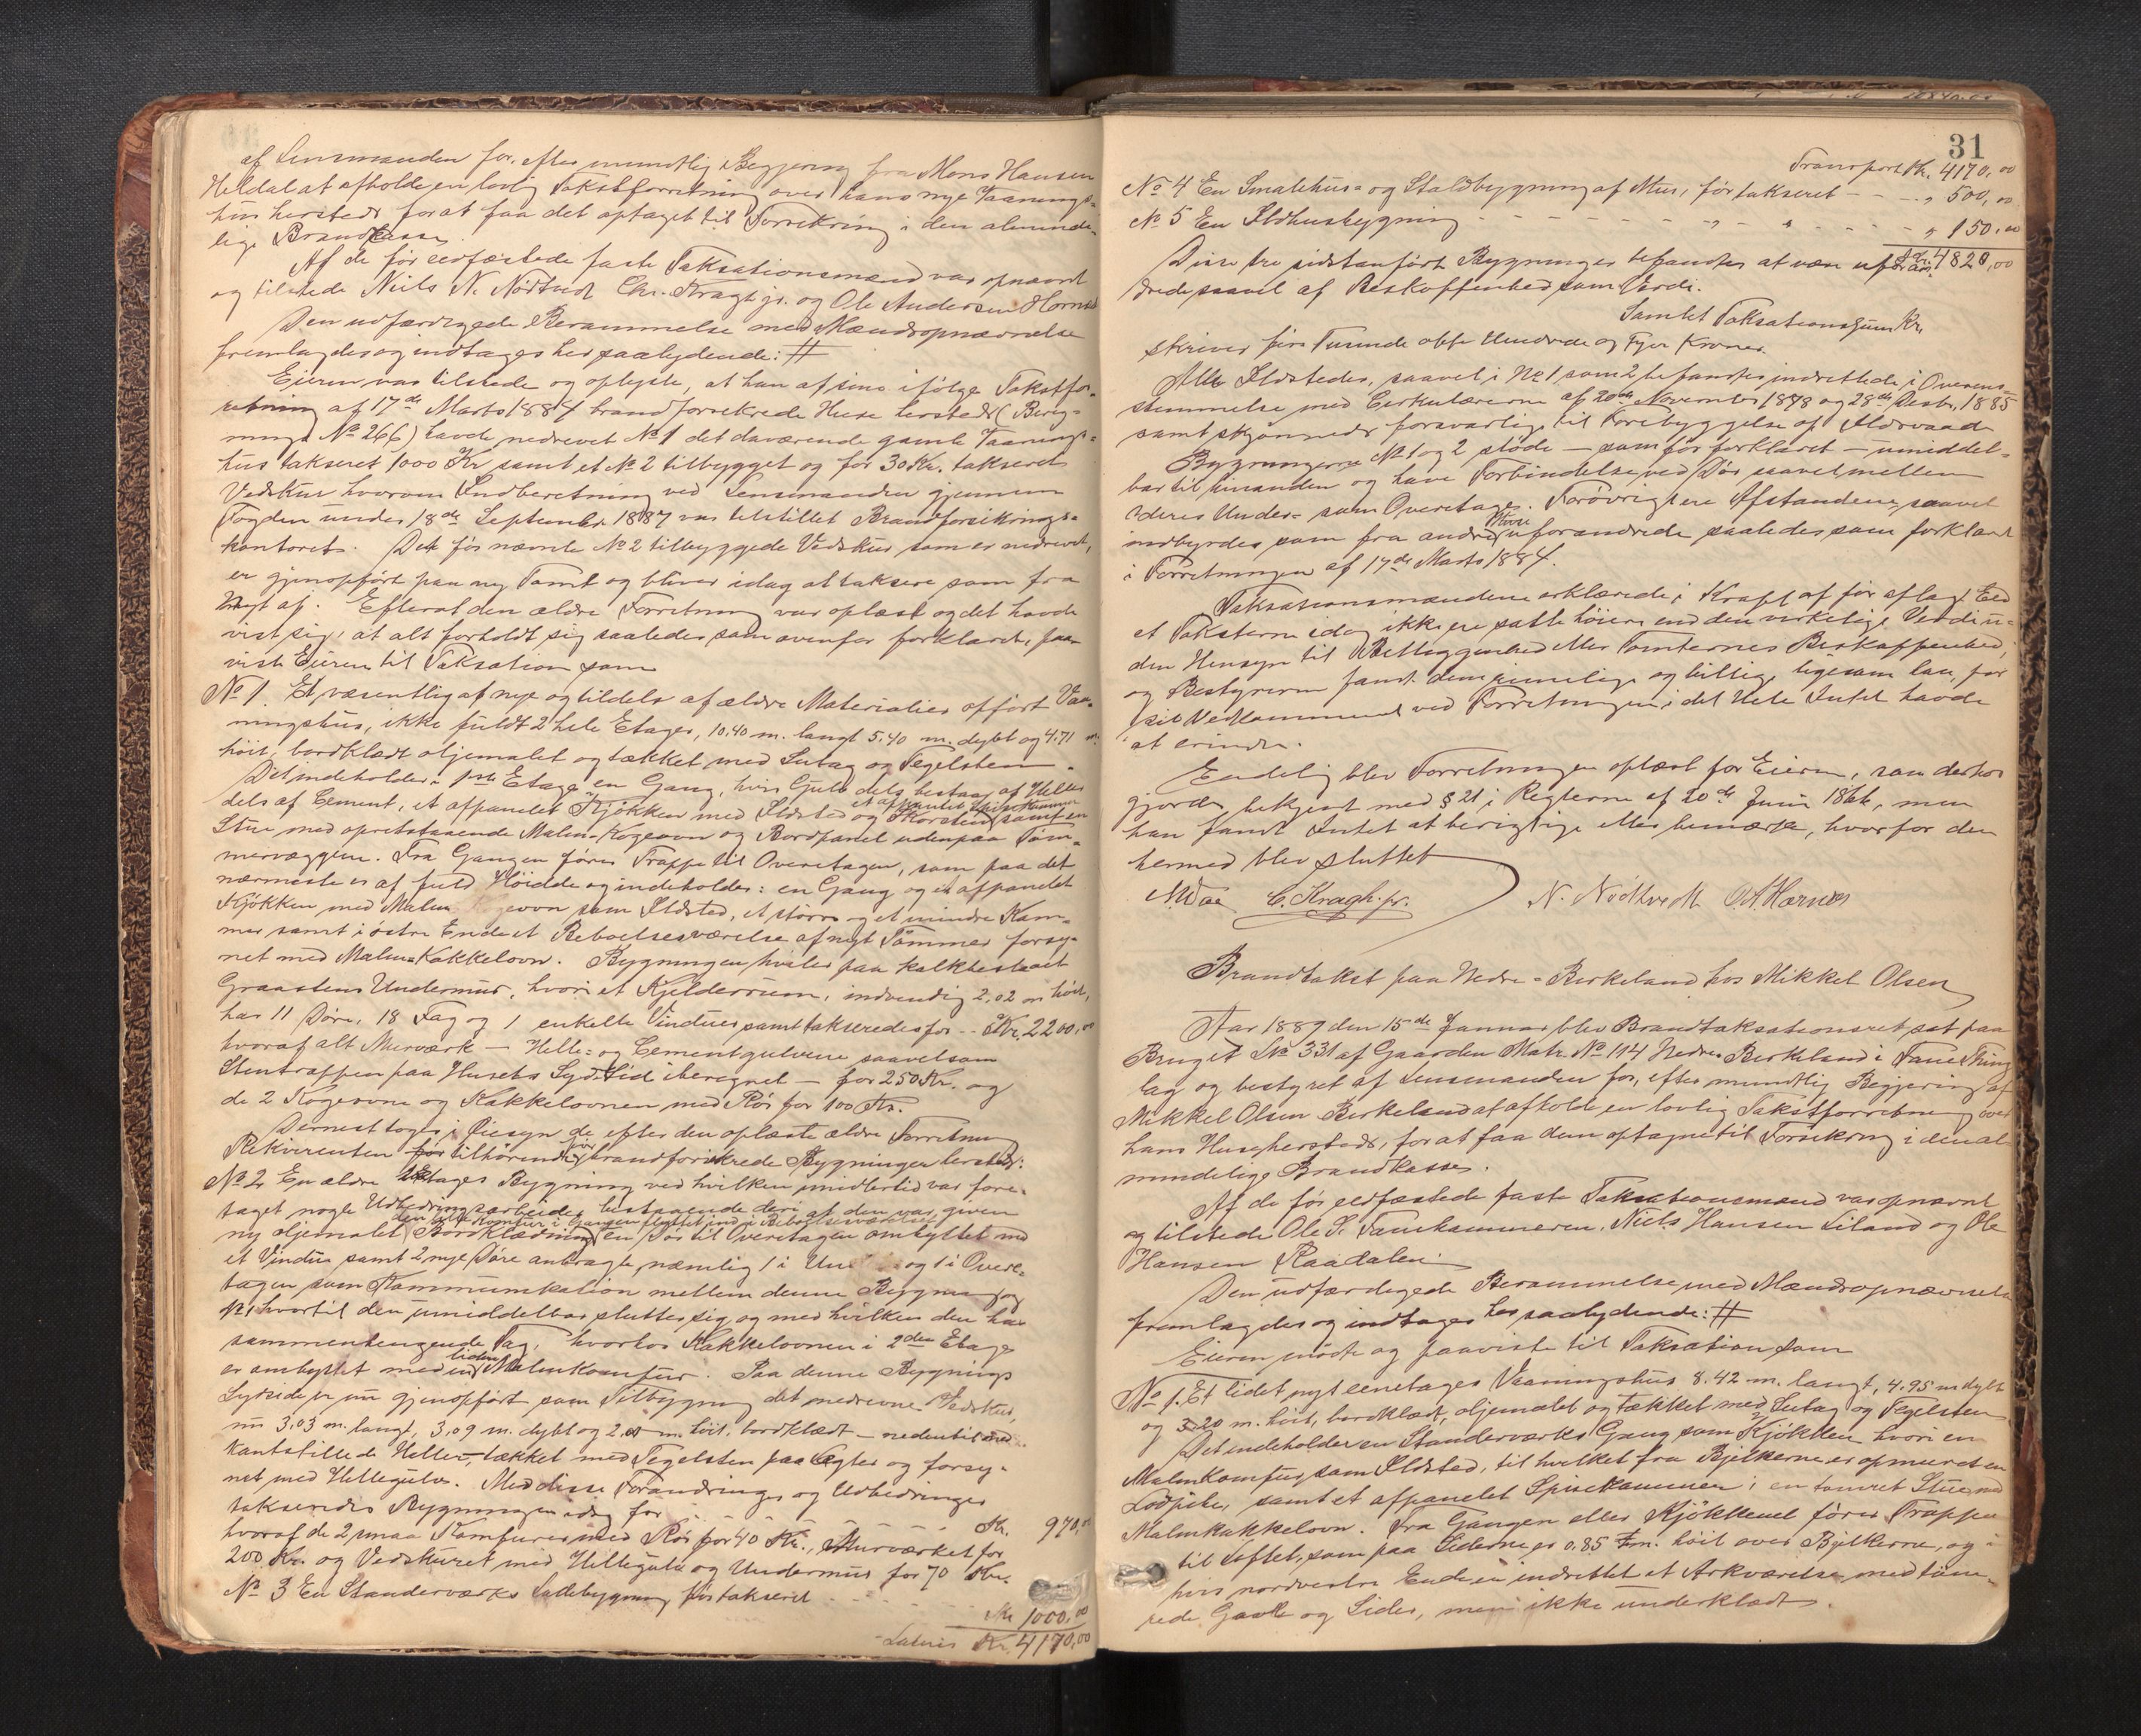 af Lensmanden for, efter mundtlig Begjering fra Mons Hansen
Heldal at afholde en lovlig Takstforretning over hans nye Vaanings-
hus hersteds for at faa det optaget til Forsikring i den alminde-
lige Brandkasse.
Af de før eedfæstede faste Taksationsmænd var opnævnt
og tilstede Niels N. Nødtvedt Chr. Kragh jr. og Ole Andersen Hornes
Den udfærdigede Berammelse med Mændsopnævnelse
fremlagdes og indtages her saalydende: #
Eieren var tilstede og oplyste, at han af sine ifølge Takstfor-
retning af 17de Marts 1884 brandforsikrede Huse hersteds (Byg-
nings No 266) havde nedrevet No 1 det daværende gamle Vaanings-
hus takseret 1000 Kr samt et No 2 tilbygget og for 30 Kr. takseret
Vedskur hvorom Indberetning ved Lensmanden gjennem
Fogden under 18de September 1887 var tilstillet Brandforsikrings-
kontoret. Det før nævnte No 2 tilbyggede Vedskur som er nedrevet,
er gjenopført paa ny Tomt og bliver idag at taksere som fra
Nyt af. Efterat den ældre Forretning var oplæst og det havde
vist sig, at alt forholdt sig saaledes som ovenfor forklaret, paa-
viste Eieren til Taksation som
No 1. Et væsentlig af nye og tildels af ældre Materialier opført Vaa-
ningshus, ikke fuldt 2 hele Etager, 10.40 m. langt 5.40 m. dybt og 4.71 m.
høit, bordklædt oljemalet og tækket med Sutag og Tegelsten.
Det indeholder i 1ste Etage en Gang, hvis Gulv dels bestaar af Heller
dels af Cement, et afpanelet Kjøkken med Ildsted og Skorsten, et afpanelet Spisekammer samt en
Stue med opretstaaende Malm-Kogeovn og Bordpanel udenpaa Tøm-
mervæggene. Fra Gangen fører Trappe til Overetagen, som paa det
nærmeste er af fuld Høide og indeholder: en Gang og et afpanelet
Kjøkken med Malm Kogeovn som Ildsted, et større og et mindre Kam-
mer samt i østre Ende et Beboelsesværelse af nyt Tømmer forsy-
net med Malm-Kakkelovn. Bygningen hviler paa kalkbestænkt
Graastens Undermur, hvori et Kjelderrum, indvendig 2,02 m høit,
har 11 Døre, 18 Fag og 1 enkelte Vinduer samt takseredes for -- Kr. 2200,00
hvoraf alt Murværk – Helle- og Cementgulvene saavelsom
Stentrappen paa Husets Syd-Side iberegnet – for 250 Kr. og
de 2 Kogeovne og Kakkelovnen med Rør for 100 Kr.
Dernæst toges i Øiesyn de efter den oplæste ældre Forretning
Rekvirenten tilhørende før brandforsikrede Bygninger hersteds:
No 2 En ældre 2 Etages Bygning ved hvilken imidlertid var fore-
taget nogle Udbedringsarbeider bestaaende deri at den var given
ny oljemalet Bordklædning, den lille Komfur i Gangen flyttet ind i Beboelsesværelset en Dør til Overetagen ombyttet med
et Vindue samt 2 nye Døre anbragte, nemlig 1 i Un og 1 i Overe-
tagen som Kommunikation mellem denne Bygning og
No 1, hvortil den umiddelbar slutter sig og med hvilken den har
sammenhængende Tag, hvorhos Kakkelovnen i 2den Etage
er ombyttet med en liden Malmkomfur. Paa denne Bygnings
Sydside er nu gjenopført som Tilbygning det nedrevne Vedskur,
nu 3,03 m. langt, 3,09 m. dybt og 2,00 m. høit, bordklædt – nedentil med
kantstillede Heller – tækket med Tegelsten paa Lægter og forsy-
net med Hellegulv. Med disse Forandringer og Udbedringer
takseredes Bygningen idag for - - - - - - Kr. 970,00
hvoraf de 2 smaa Komfurer med Rør for 40 Kr., Murværket for
200 Kr. og Vedskuret med Hellegulv og Undermur for 70 Kr.
No 3 En Standerværks Ladebygning før takseret - - - - - Kr 1000,00
Lateris Kr. 4170,00
31
Transport Kr. 4170,00
No 4 En Smalehus- og Staldbygning af Mur, før takseret - - - „ 500,00
No 5 En Ildhusbygning - - - - - - „ - „ - - - - „ 150,00
Kr. 4820,00
Disse tre sidstanførte Bygninger befandtes at være uforan-
drede saavel af Beskaffenhed som Værdi.
Samlet Taksationssum Kr.
skriver fire Tusinde otte Hundrede og Tyve Kroner.
Alle Ildsteder, saavel i No 1 som 2 befandtes indrettede i Overens-
stemmelse med Cirkulærerne af 20de November 1878 og 28de Decbr. 1885
samt skjønnedes forsvarlige til Forebyggelse af Ildsvaade
Bygningerne No 1 og 2 støde – som før forklaret – umiddel-
bar til hinanden og have Forbindelse ved Dør saavel mellem
deres Under- som Overetage. Forøvrigt ere Afstandene, saavel
indbyrdes som fra andre Huse uforandrede saaledes som forklaret
i Forretningen af 17de Marts 1884.
Taksationsmændene erklærede i Kraft af før aflagt Eed
at Taksterne idag ikke ere satte høiere end den virkelige Verdi u-
den Hensyn til Beliggenhed eller Tomternes Beskaffenhed,
og Bestyreren fandt dem rimelige og billige ligesom han for
sit Vedkommende ved Forretningen i det Hele Intet havde
at erindre.
Endelig blev Forretningen oplæst for Eieren, som derhos
gjordes bekjent med § 21 i Reglerne af 20de Juni 1866, men
han fandt Intet at berigtige eller bemærke, hvorfor den
hermed blev sluttet
C. Kragh jr. N. Nødtvedt O. A. Hornes
Brandtakst paa Nedre-Birkeland hos Mikkel Olsen
Aar 1889 den 15de Januar blev Brandtaksationsret sat paa
Bruget L No 331 af Gaarden Matr. No 114 Nedre Birkeland i Fane Thing-
lag og bestyret af Lensmanden for, efter mundtlig Begjering af
Mikkel Olsen Birkeland at afholde en lovlig Takstforretning over
hans Huse hersteds, for at faa dem optagne til Forsikring i den al-
mindelige Brandkasse.
Af de før eedfæstede faste Taksationsmænd var opnævnt
og tilstede Ole S. Fanehammeren, Niels Hansen Liland og Ole
Hansen Raadalen.
Den udfærdigede Berammelse med Mændsopnævnelse
fremlagdes og indtages her saalydende: #
Eieren mødte og paaviste til Taksation som
No 1. Et lidet nyt eenetages Vaaningshus 8.42 m. langt, 4.95 m dybt
og 3.20 m. høit, bordklædt, oljemalet og tækket med Sutag og Tegelsten
Det indeholder en Standerværks Gang som Kjøkken hvori en
Malmkomfur som Ildsted, til hvilket fra Bjelkerne er opmuret en
Lodpibe, samt et afpanelet Spisekammer; en tømret Stue med
Malmkakkelovn. Fra Gangen eller Kjøkkenet fører Trappe
til Loftet, som paa Siderne er 0.85 m. høit over Bjelkerne, og i
hvis nordvestre Ende er indrettet et Arkværelse med tøm-
rede Gavle og Sider, men ikke underklædt.